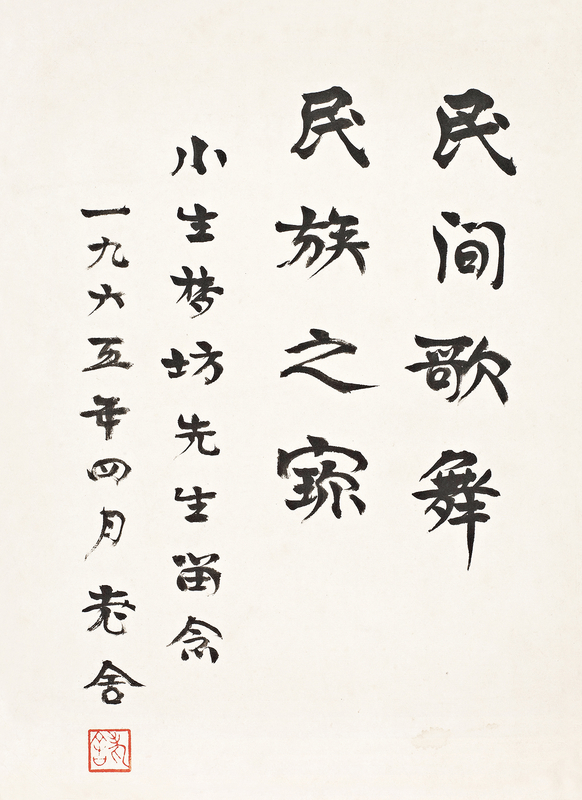 民间歌舞
民族之寳
小生梦坊先生畄念
一九六五年四月老舍
老舍